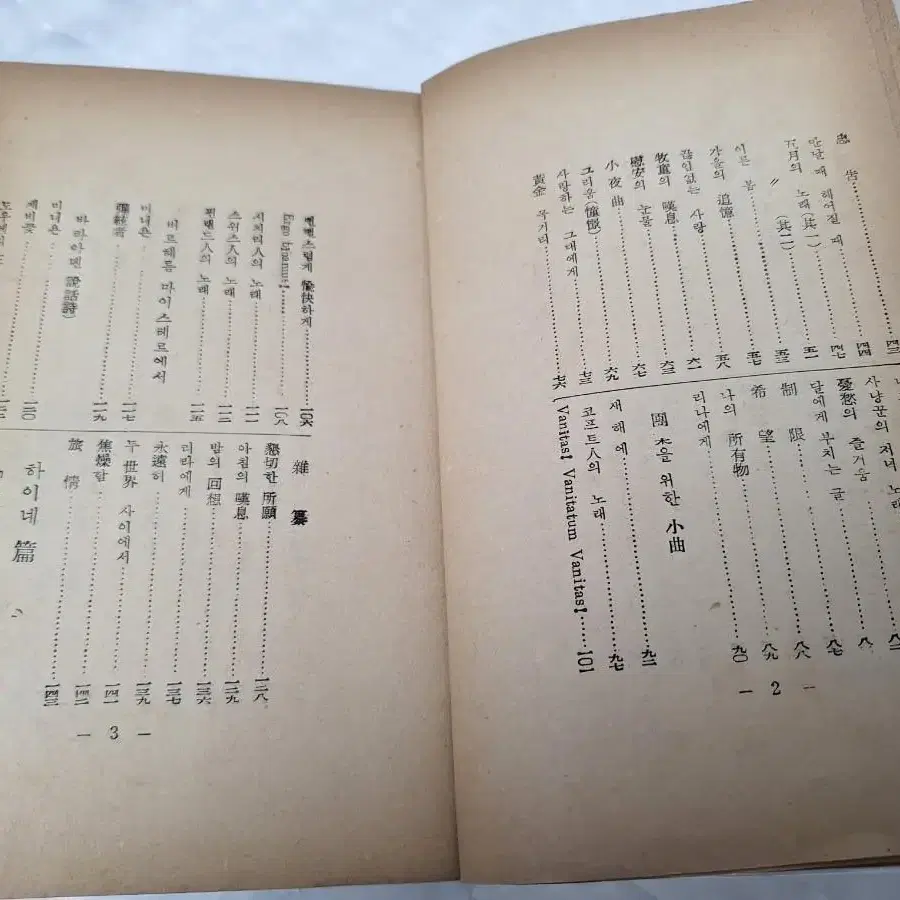 忠告……四三
만날 때 헤어질 때……四四
五月의 노래(其一)……四七
〃 (其二)……五一
이른 봄……五三
가을의 追憶……五七
끊임없는 사랑……五八
牧童의 嘆息……六一
慰安의 눈물……六三
小夜曲……六七
그리움(憧憬)……六九
사랑하는 그대에게……七三
黃金 목거리……七六
사냥꾼의 저녁 노래
憂愁의 즐거움……八二
달에게 부치는 글……八
制限……八七
希望……八八
나의 所有物……八九
리나에게……九〇
團欒을 위한 小曲
새해에……九二
코프트人의 노래……九七
Vanitas! Vanitatum Vanitas!……101
— 2 —
愉快하게……106
Ergo bibamus!……一〇八
시치리人의 노래……一一一
스위스人의 노래……一一二
핀랜드人의 노래……一一五
비르헤름 마이스테르에서
미니욘……一一七
彈絃者……一一九
說話詩
미니욘
제비꽃……一二〇
雜纂
懇切한 所願……一二八
아침의 嘆息……一二九
밤의 回想……一三六
리라에게……一三七
永遠히……一三九
두 世界 사이에서……一四一
焦燥함……一四二
旅情……一四三
하이네 篇
— 3 —